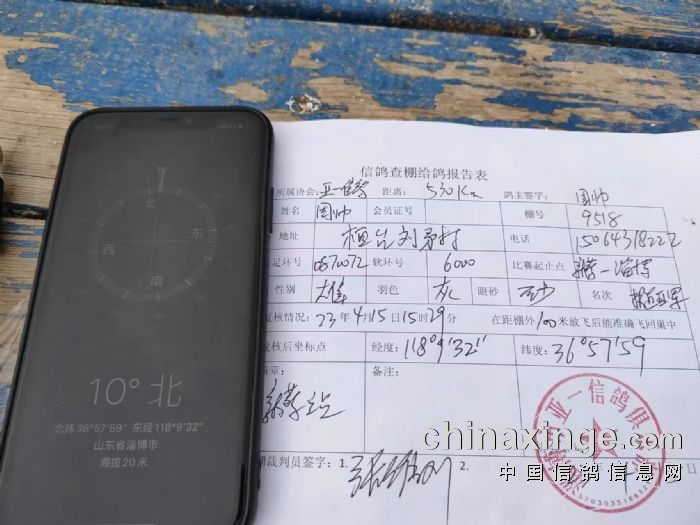 北
西
东
南
10° 北
北纬36°57′59″ 东经118°9′32″
山东省淄博市
海拔20米
信鸽查棚给鸽报告表
所属协会: 亚一 距离: 530Km 鸽主签字: 周帅
姓名 周帅 会员证号 棚号 9518
地址 桓台刘 村 电话 15064318222
足环号 0870072 软环号 6000 比赛起止点 一淄博
性别 雄 羽色 灰 眼砂 名次
复核情况: 23年4月15日15时29分 在距棚外100米放飞后能准确飞回巢中
复核后坐标点 经度: 118°9′32″ 纬度: 36°57′59
备注:
裁判员签字: 1. 2.
亚一信鸽俱
chinaxinge.com
中国信鸽信息网